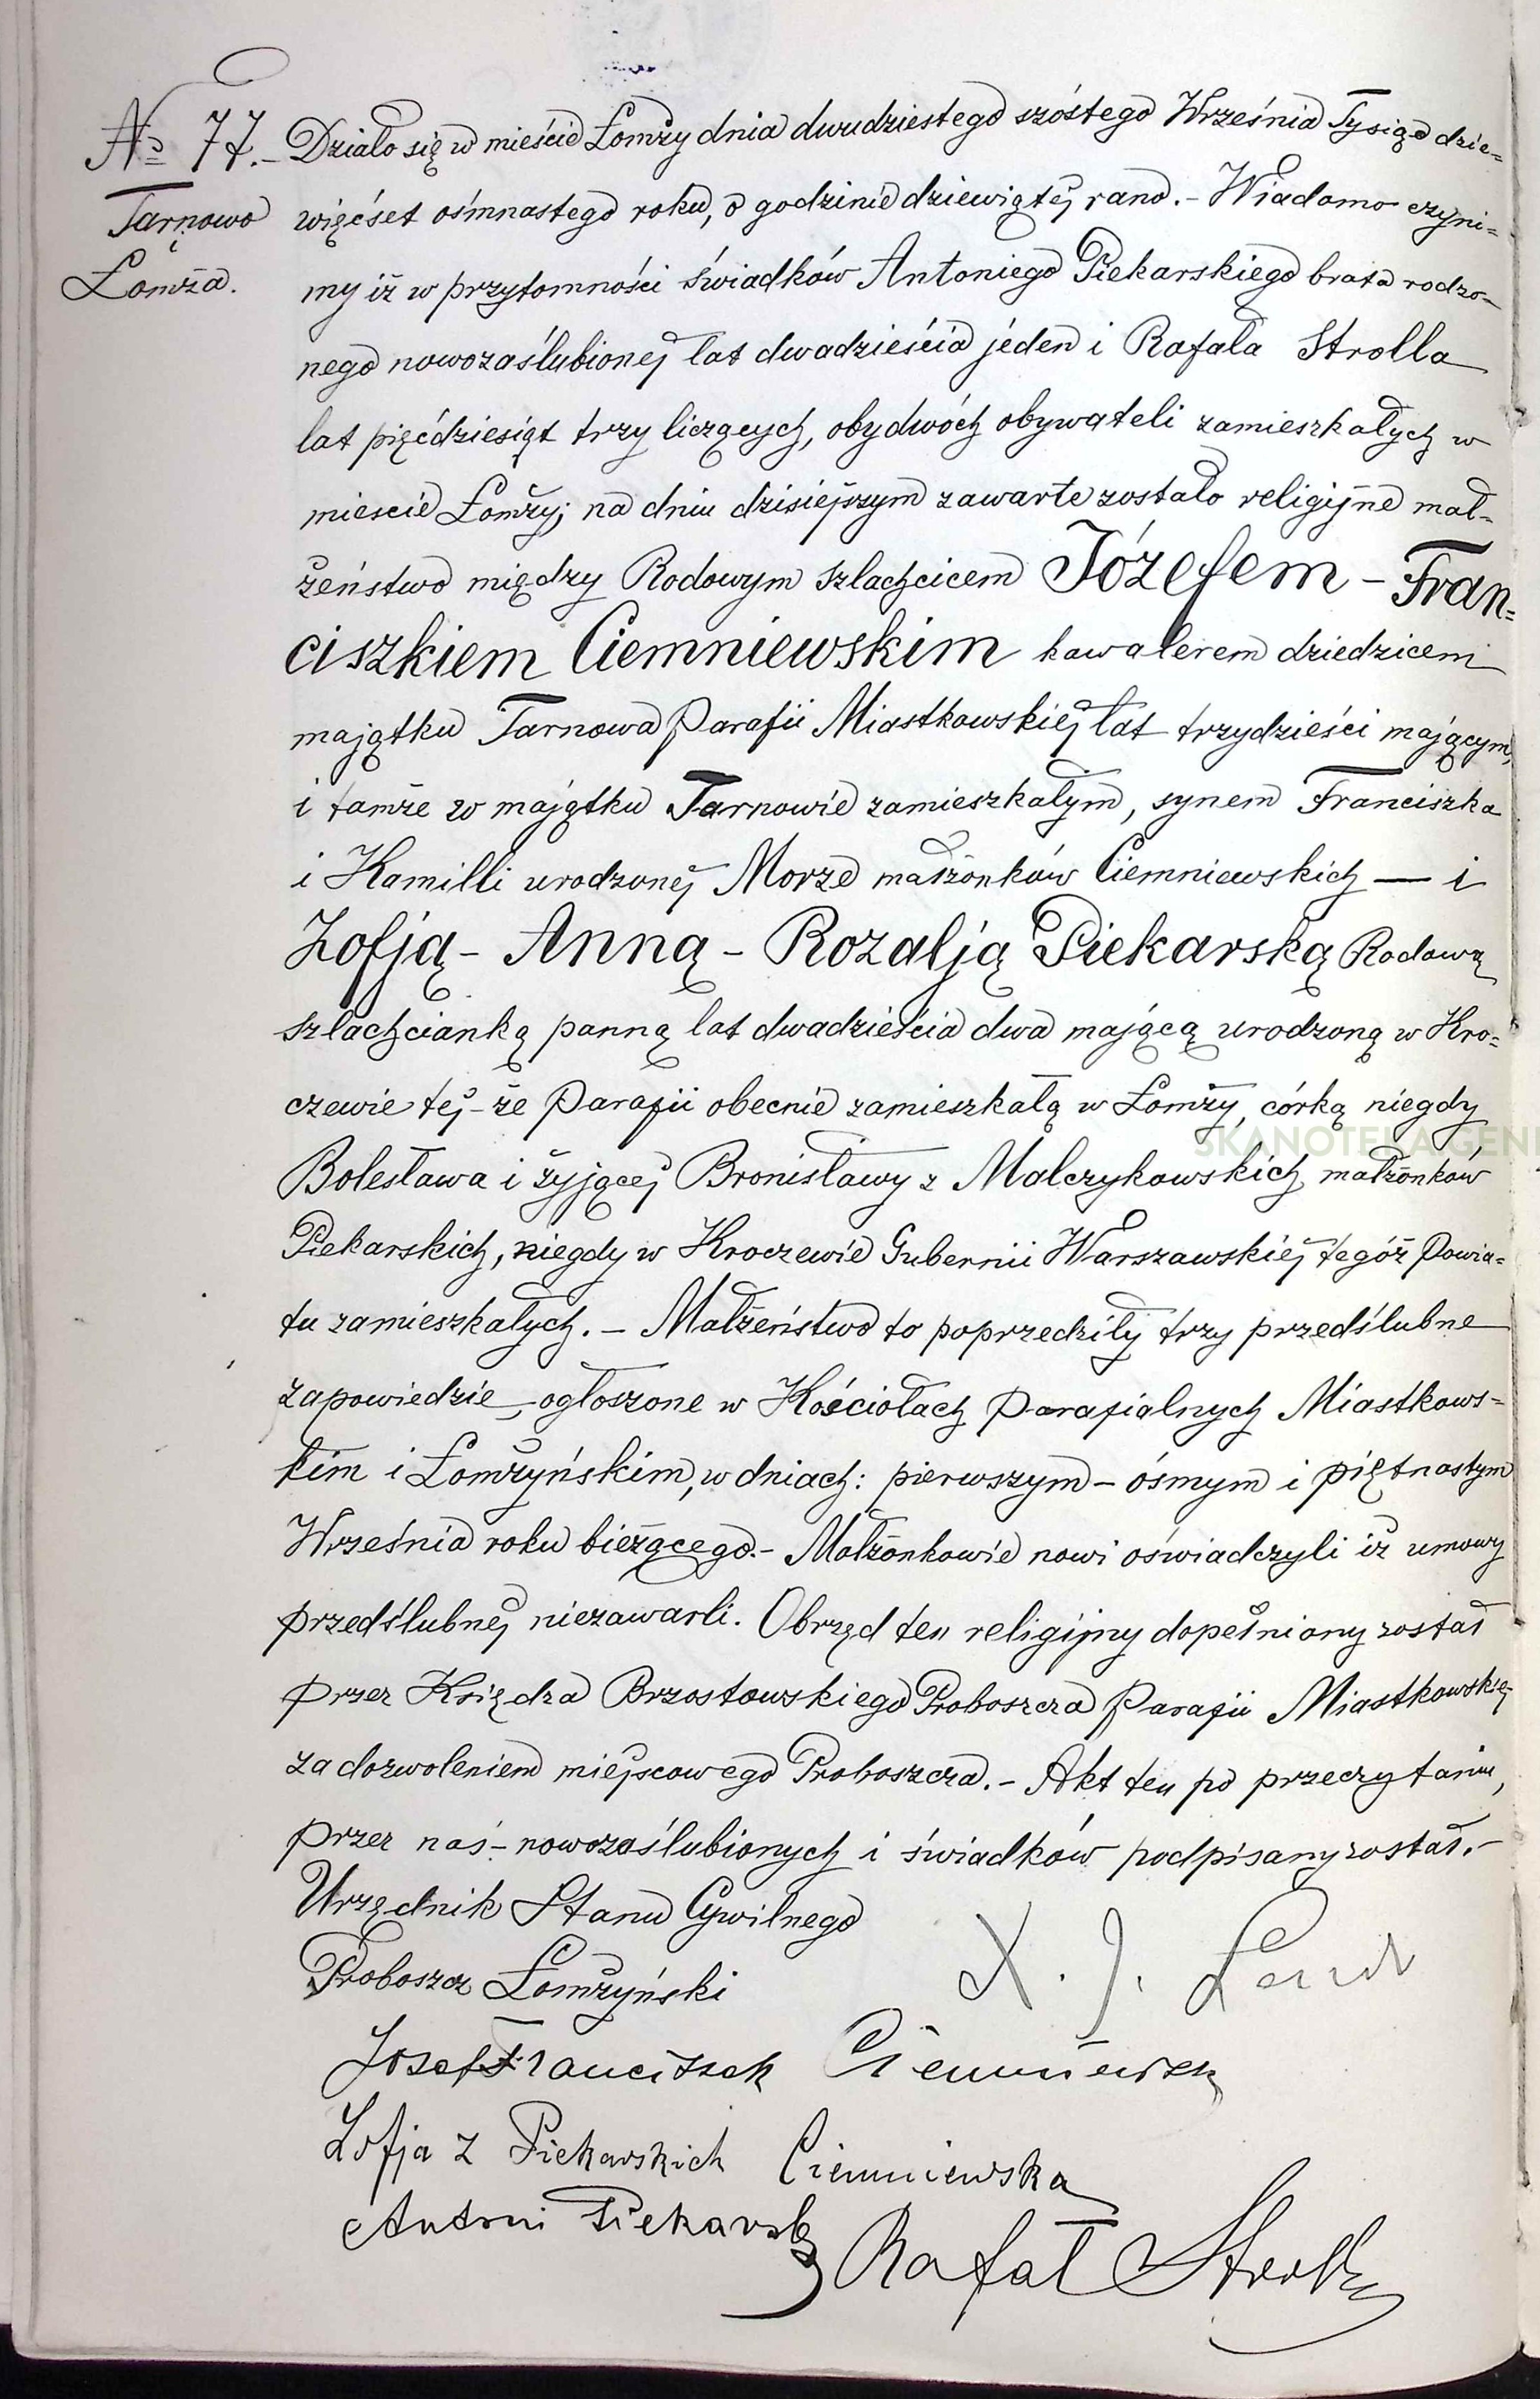 № 77.- Działo się w mieście Łomży dnia dwudziestego szóstego Września Tysiąc dzie=
Tarnowo
Łomża.
więćset ośmnastego roku, o godzinie dziewiątéj rano.- Wiadomo czyni=
my iż w przytomności świadków Antoniego Piekarskiego brata rodzo-
nego nowozaślubionej lat dwadzieścia jéden i Rafała Strolla
lat pięćdziesiąt trzy liczących, obydwóch obywateli zamieszkałych w
miescie Łomży; na dniu dzisiejszym zawarte zostało religijne mał-
żeństwo między Rodowym szlachcicem Józefem - Fran=
ciszkiem Ciemniewskim kawalerem dziedzicem
majątku Tarnowa Parafii Miastkowskiej lat trzydzieści mającym,
i tamże w majątku Tarnowie zamieszkałym, synem Franciszka
i Kamilli urodzonej Morze małżonków Ciemniewskich — i
Zofją - Anną - Rozalją Piekarską Rodową
szlachcianką panną lat dwadzieścia dwa mającą urodzoną w Kro=
czewie tej-że Parafii obecnie zamieszkałą w Łomży, córką niegdy
Bolesława i żyjącej Bronisławy z Malczykowskich małżonków
Piekarskich, niegdy w Kroczewie Gubernii Warszawskiej tegóż Powia=
tu zamieszkałych. - Małżeństwo to poprzedziły trzy przedślubne
zapowiedzie, ogłoszone w Kościołach Parafialnych Miastkows=
kim i Łomżyńskim, w dniach: pierwszym - ósmym i piętnastym
Września roku bieżącego.- Małżonkowie nowi oświadczyli iż umowy
przedślubnej niezawarli. Obrzęd ten religijny dopełniony został
przez Księdza Brzostowskiego Proboszcza Parafii Miastkowskiej
za dozwoleniem miejscowego Proboszcza.- Akt ten po przeczytaniu,
przez nas - nowozaślubionych i świadków podpisany został.-
Urzędnik Stanu Cywilnego
Proboszcz Łomżyński X. J.
Józef Franciszek Ciemniewski
Zofja z Piekarskich Ciemniewska
Antoni Piekarski Rafał Stroll
SKANOTEKA.GEN